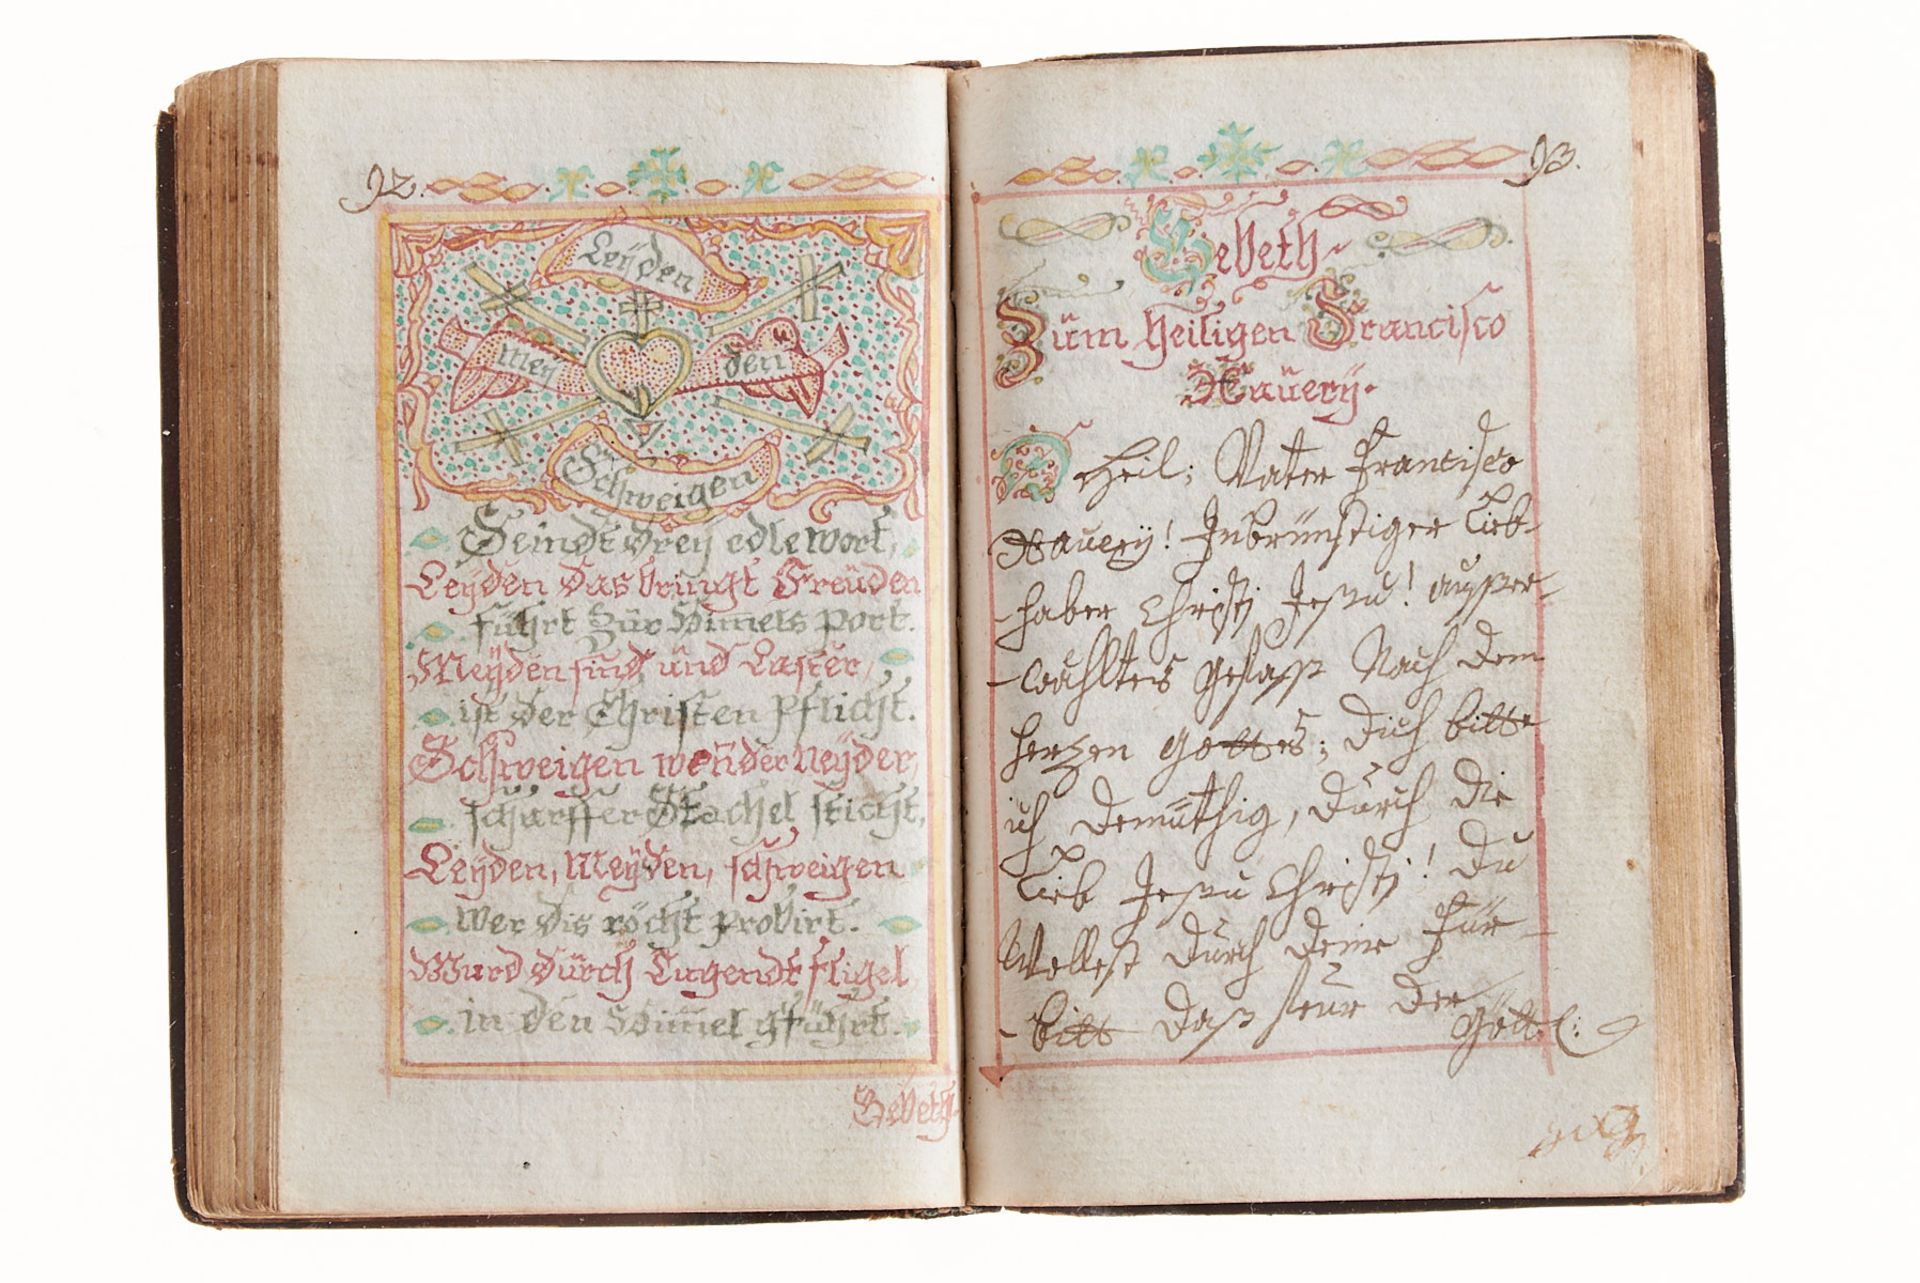 92.
Leÿden
meÿ den
Schweigen
Seindt dreÿ edle wort,
Leÿden das bringt Freüden
führt zür Himels port.
Meÿden sünd ünd Laster,
ist der Christen pflicht.
Schweigen wen̄ der Neÿder,
scharffer Stachel sticht,
Leÿden, Meÿden, schweigen
wer dis röcht probirt.
Wurd dürch Tugendt fligel
in den Himel gführt.
Gebeth
93.
Gebeth
Züm heiligen Francisco
Xauerÿ.
O Heil; Vatter Francisco
Xauerÿ! Inbrünstiger Lieb-
-haber Christi Jesu! ausser-
-wahltes gefass Nach dem
herzen Gottes; dich bitte
ich demüthig, dürch die
Lieb Jesu Christi! Du
Wollest dürch deine für-
-bitt das feür der
Göttl: